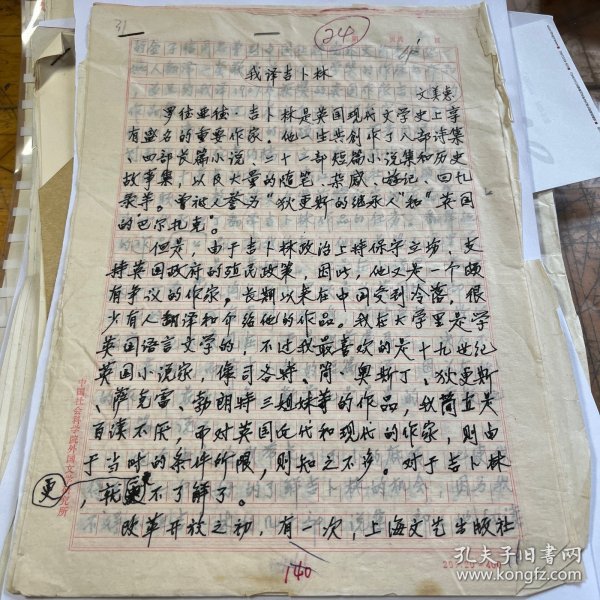 31
24
我译吉卜林
文美惠
罗德亚德·吉卜林是英国现代文学史上享
有盛名的重要作家。他一生共创作了八部诗集
、四部长篇小说、二十二部短篇小说集和历史
故事集,以及大量的随笔、杂感、游记、回忆
录等。曾被人誉为“狄更斯的继承人”和“英国
的巴尔扎克”。
但是,由于吉卜林政治上持保守立场,支
持英国政府的殖民政策,因此,他又是一个颇
有争议的作家。长期以来在中国受到冷落,很
少有人翻译和介绍他的作品。我在大学里是学
英国语言文学的,不过我最喜欢的是十九世纪
英国小说家,像司各特、简·奥斯丁、狄更斯
、萨克雷、勃朗特三姐妹等的作品,我简直是
百读不厌,而对英国近代和现代的作家,则由
于当时的条件所限,则知之不多。对于吉卜林
,我更不了解了。
更
改革开放之初,有一次,上海文艺出版社
中国社会科学院外国文学研究所
140
孔夫子旧书网